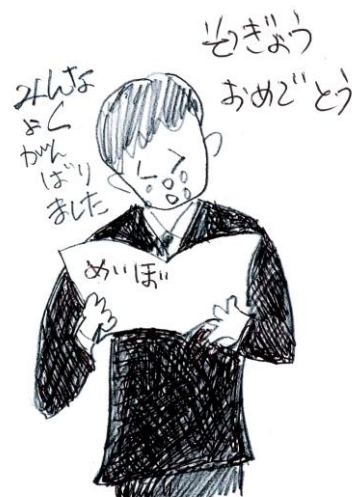 そつぎょう
おめでとう
みんな
よく
がん
ばり
ました
めいぼ